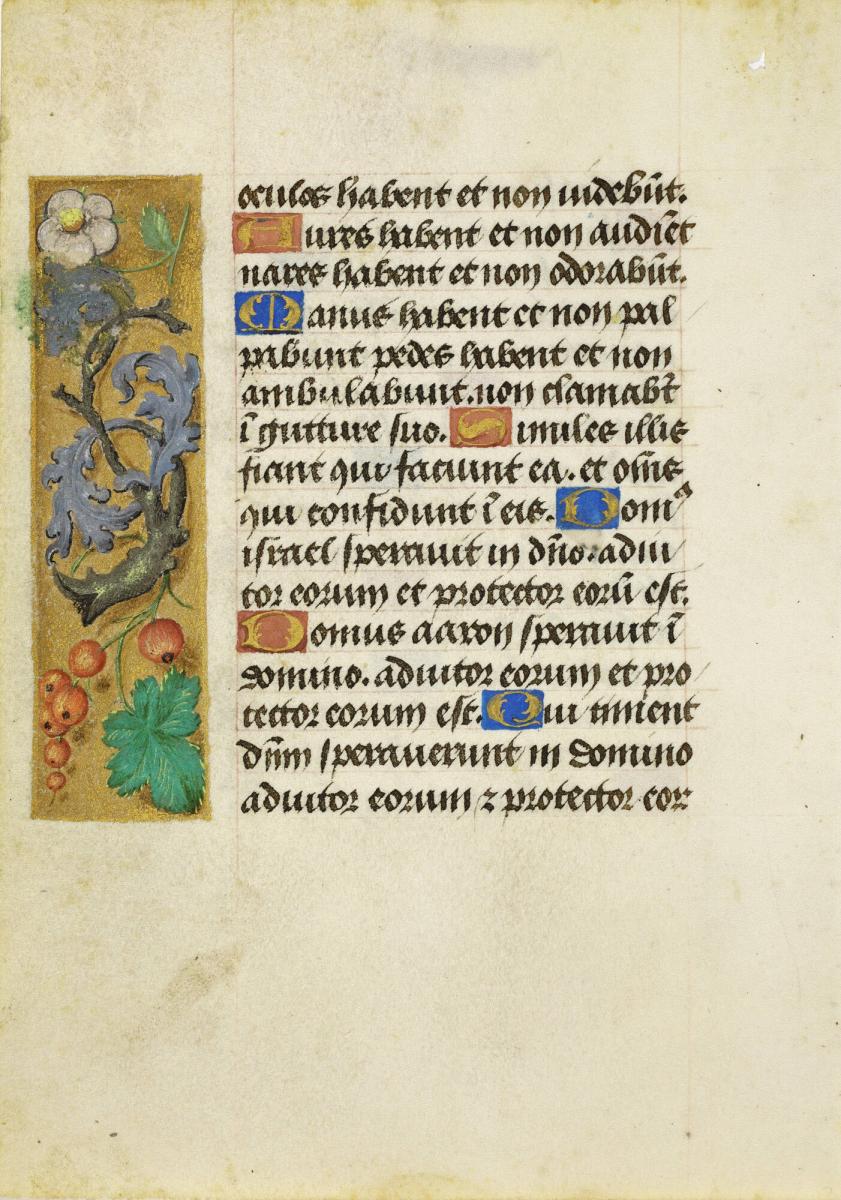 oculos habent et non uidebūt.
Aures habent et non audiēt
nares habent et non odorabūt.
Manus habent et non pal
pabunt pedes habent et non
ambulabunt. non clamabt̄
ī gutture suo. Similes illis
fiant qui faciunt ea. et om̄s
qui confidunt ī eis. Domꝰ
israel sperauit in dn̄o. adiu
tor eorum et protector eorū est.
Domus aaron sperauit ī
domino. adiutor eorum et pro
tector eorum est. Qui timent
dnm̄ sperauerunt in domino
adiutor eorum ⁊ protector eoꝝ